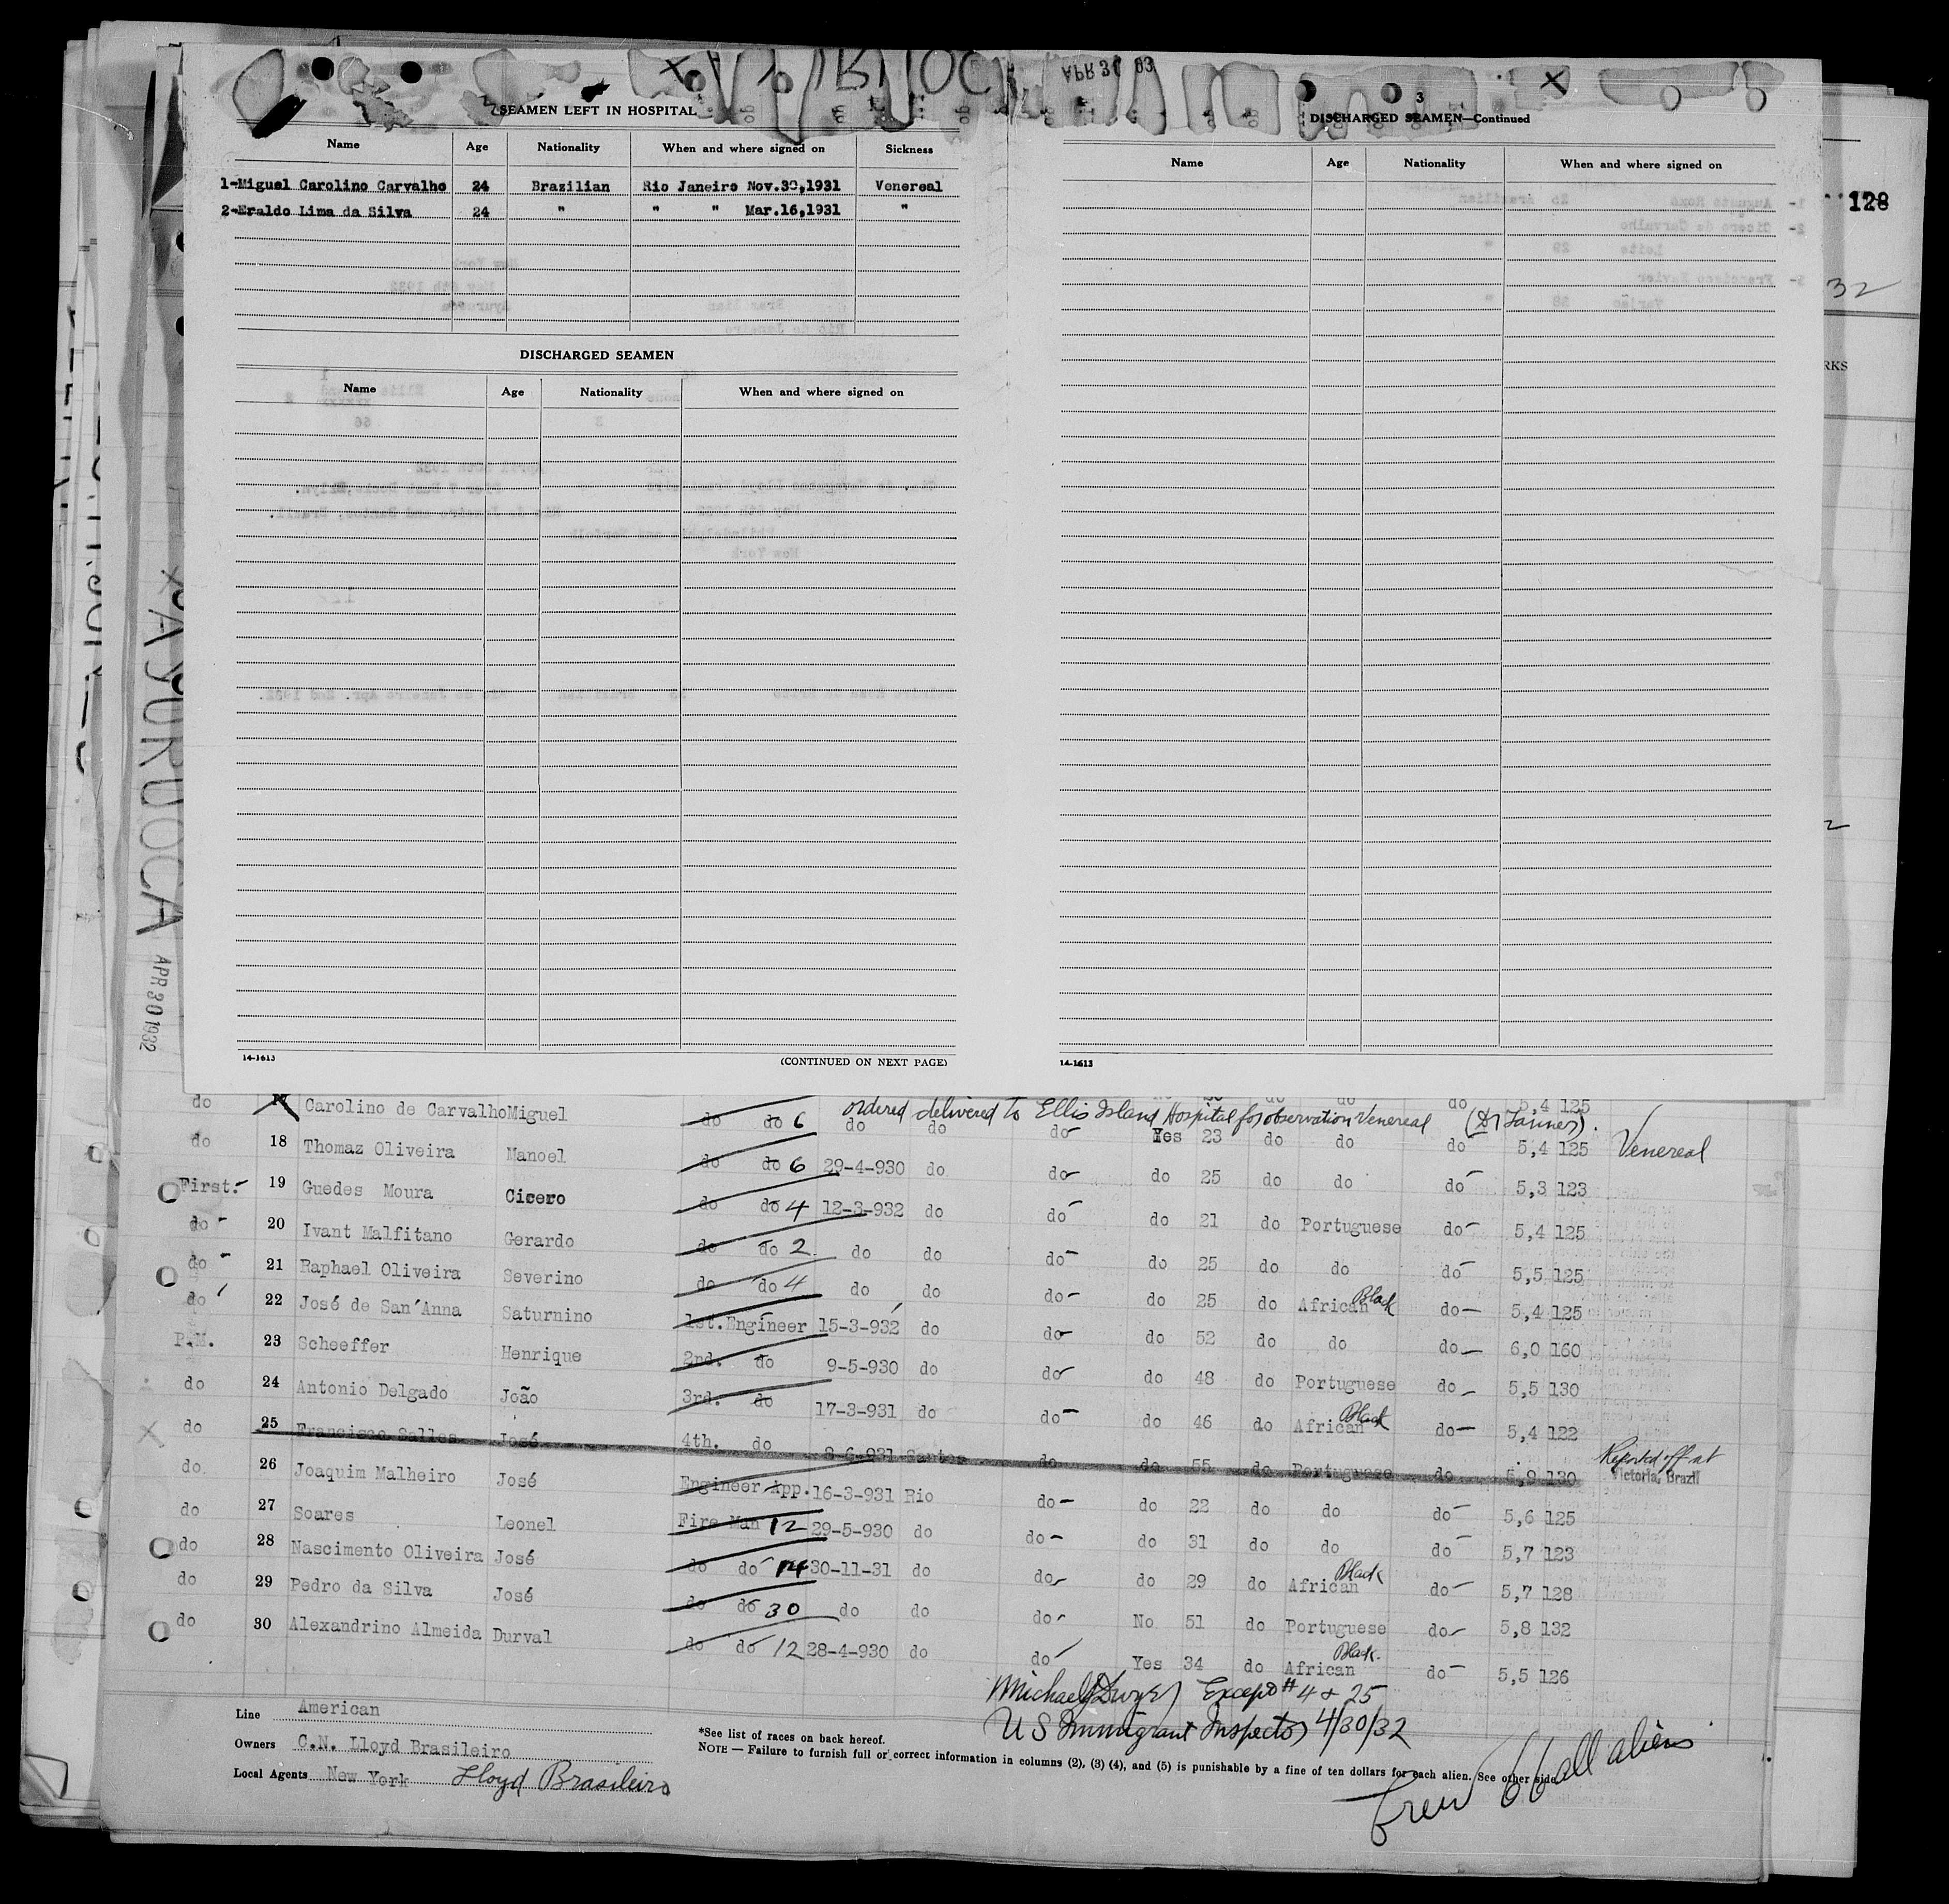 APR 30 93
SEAMEN LEFT IN HOSPITAL
Name Age Nationality When and where signed on Sickness
1-Miguel Carolino Carvalho 24 Brazilian Rio Janeiro Nov.30,1931 Venereal
2-Eraldo Lima da Silva 24 " " " Mar.16,1931 "
DISCHARGED SEAMEN
Name Age Nationality When and where signed on
14-1613 (CONTINUED ON NEXT PAGE)
3
DISCHARGED SEAMEN—Continued
Name Age Nationality When and where signed on
14-1613
128
32
RKS
X AYURUOCA APR 30 1932
do Carolino de Carvalho Miguel do do 6 do do do do do do 5,4 125
ordered delivered to Ellis Island Hospital for observation Venereal
do 18 Thomaz Oliveira Manoel do do 6 29-4-930 do do Yes 23 do do do 5,4 125 Venereal
First. 19 Guedes Moura Cicero do do 4 12-3-932 do do do 25 do do do 5,3 123
do 20 Ivant Malfitano Gerardo do do 2 do do do do 21 do Portuguese do 5,4 125
do 21 Raphael Oliveira Severino do do 4 do do do do 25 do do do 5,5 125
do 22 José de San'Anna Saturnino 1st. Engineer 15-3-932 do do do 25 do African Black do 5,4 125
P.M. 23 Scheeffer Henrique 2nd. do 9-5-930 do do do 52 do do do 6,0 160
do 24 Antonio Delgado João 3rd. do 17-3-931 do do do 48 do Portuguese do 5,5 130
do 25 Francisco Salles José 4th. do 8-6-931 Santos do do 46 do African Black do 5,4 122
do 26 Joaquim Malheiro José Engineer App. 16-3-931 Rio do do 55 do Portuguese do 5,9 130 Reported off at Victoria, Brazil
do 27 Soares Leonel Fire Man 12 29-5-930 do do do 22 do do do 5,6 125
do 28 Nascimento Oliveira José do do 14 30-11-31 do do do 31 do do do 5,7 123
do 29 Pedro da Silva José do do 30 do do do do 29 do African Black do 5,7 128
do 30 Alexandrino Almeida Durval do do 12 28-4-930 do do No 51 do Portuguese do 5,8 132
do Yes 34 do African Black do 5,5 126
Except # 4 & 25
US Immigrant Inspector 4/30/32
Line American
Owners C.N. Lloyd Brasileiro
Local Agents New York Lloyd Brasileiro
*See list of races on back hereof.
NOTE — Failure to furnish full or correct information in columns (2), (3) (4), and (5) is punishable by a fine of ten dollars for each alien. See other side.
Crew 66 all aliens